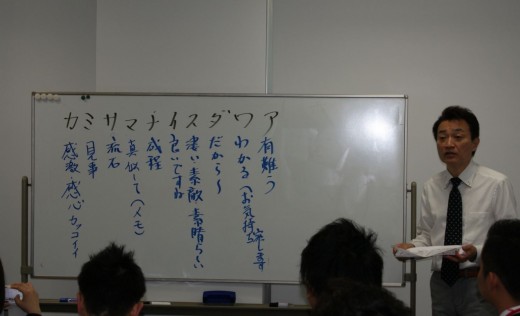 ア 有難う
ワ わかる(お気持 察します
ダ だから〜
ス 凄い 素敵 素晴らしい
イ 良いですね
ナ 成程
マ 真似して(イモ)
サ さすが
ミ 見事
カ 感激 感心 カッコイイ